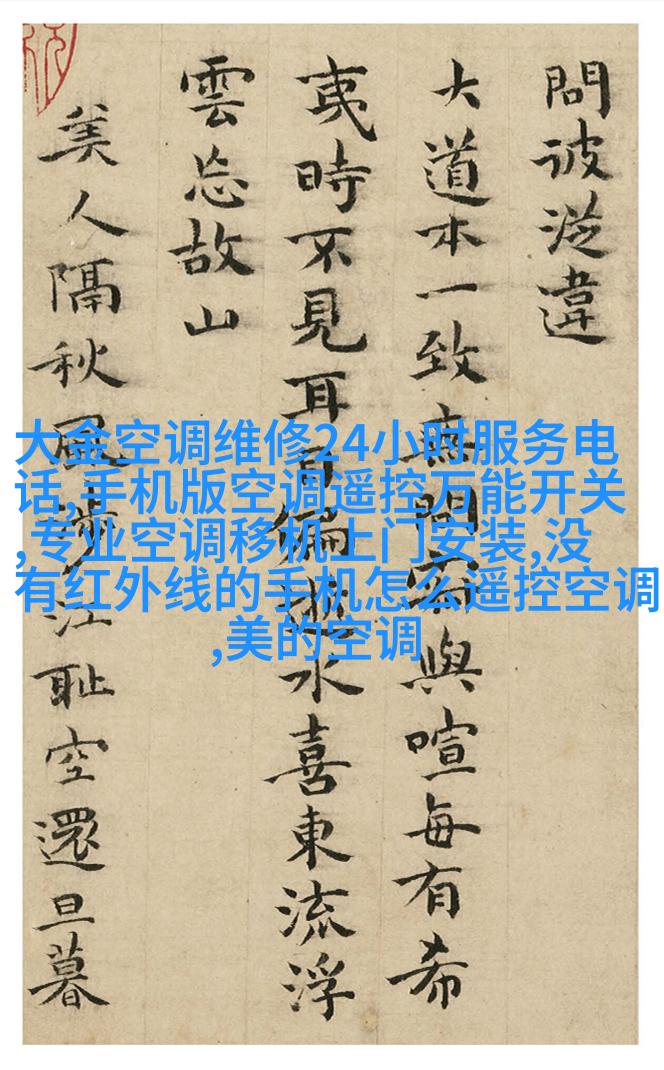 問彼從違
大道本一致無間與喧每有希
夷時不見耳目偏逝水喜東流浮
雲忘故山
美人隔秋風涉江耻空還旦暮
大金空调维修24小时服务电
话,手机版空调遥控万能开关
,专业空调移机上门安装,没
有红外线的手机怎么遥控空调
,美的空调